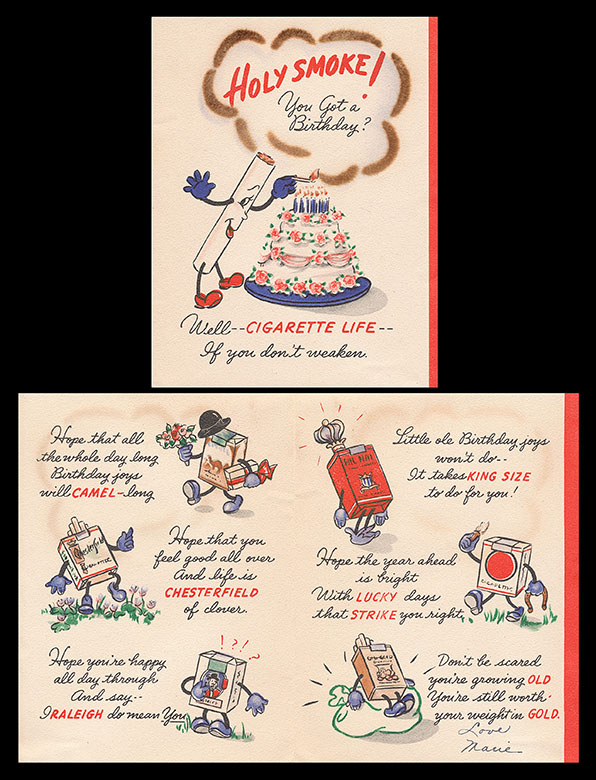 HOLY SMOKE!
You Got a
Birthday?
Well--CIGARETTE LIFE--
If you don't weaken.
Hope that all
the whole day long
Birthday joys
will CAMEL-long
Hope that you
feel good all over
And life is
CHESTERFIELD
of clover.
Chesterfield
Hope you're happy
all day through
And say--
I RALEIGH do mean You
!?!?
Little ole Birthday joys
won't do--
It takes KING SIZE
to do for you!
PALL MALL
Hope the year ahead
is bright
With LUCKY days
that STRIKE you right,
Don't be scared
you're growing OLD
You're still worth
your weight in GOLD.
Love
Marie